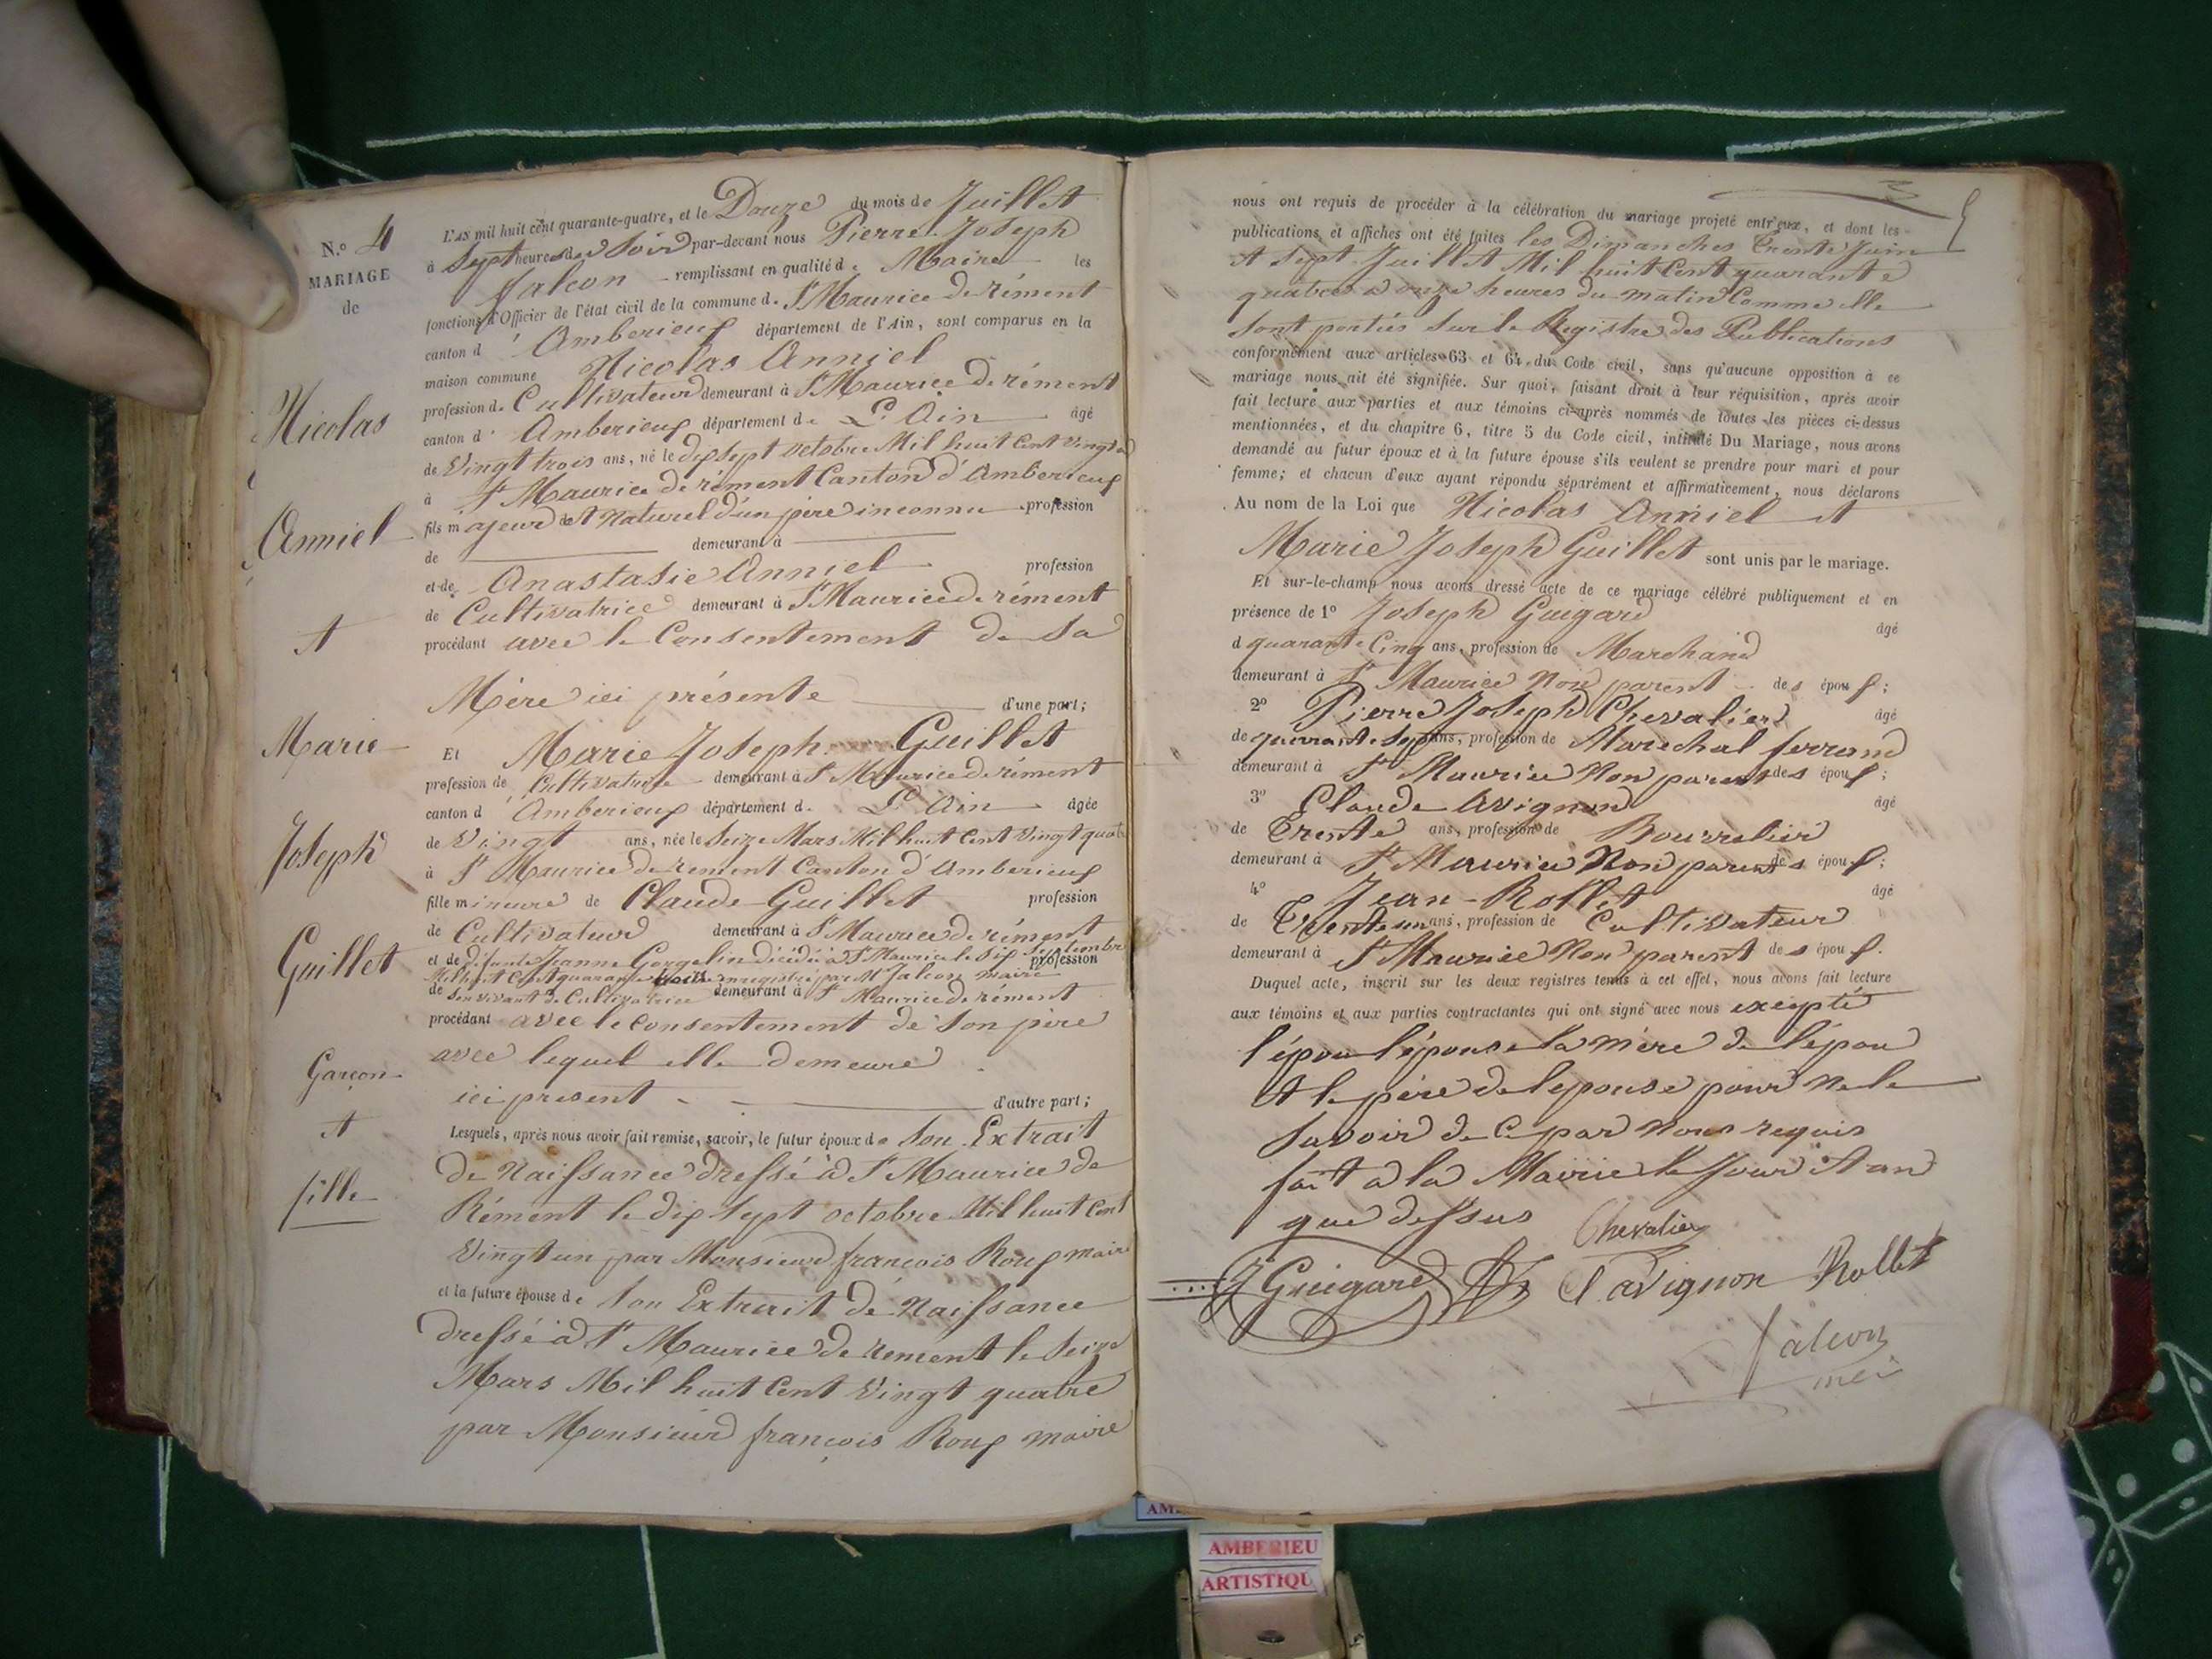 N.o 4
MARIAGE
de
Nicolas
Anniel
et
Marie
Joseph
Guillet
Garçon
et
fille
L'AN mil huit cent quarante-quatre, et le Douze du mois de Juillet
à Sept heures du Soir par-devant nous Pierre Joseph
falcon remplissant en qualité de Maire les
fonctions d'Officier de l'état civil de la commune de St Maurice De rément
canton d'Amberieux département de l'Ain, sont comparus en la
maison commune Nicolas Anniel
profession de Cultivateur demeurant à St Maurice De rément
canton d'Amberieux département de L'Ain âgé
de Vingt trois ans, né le dix Sept octobre Mil huit Cent Vingt
à St Maurice de rément Canton d'Amberieux
fils majeur et Naturel d'un père inconnu profession
de demeurant à
et de Anastasie Anniel profession
de Cultivatrice demeurant à St Maurice De rément
procédant avec le Consentement de Sa
Mère ici présente d'une part;
Et Marie Joseph Guillet
profession de Cultivatrice demeurant à St Maurice De rément
canton d'Amberieux département de L'Ain âgée
de Vingt ans, née le Seize Mars Mil huit Cent Vingt quatre
à St Maurice de rement Canton d'Amberieux
fille mineure de Claude Guillet profession
de Cultivateur demeurant à St Maurice De rément
et de défunte Jeanne Gorgelin décédée à St Maurice le dix Septembre profession
Mil huit Cent quarante trois enregistré par Mr falcon maire
de Son vivant de Cultivatrice demeurant à St Maurice De rément
procédant avec le consentement de Son père
avec lequel elle demeure
ici présent d'autre part;
Lesquels, après nous avoir fait remise, savoir, le futur époux de Son Extrait
De Naissance dressé à St Maurice de
Rément le dix Sept octobre Mil huit Cent
Vingt un par Monsieur françois Roux maire
et la future épouse de Son Extrait de Naissance
dressé à St Maurice De rement le Seize
Mars Mil huit Cent Vingt quatre
par Monsieur françois Roux maire
nous ont requis de procéder à la célébration du mariage projeté entr'eux, et dont les
publications et affiches ont été faites les Dimanches trente Juin
et Sept Juillet Mil huit Cent quarante
quatre à onze heures du matin Comme elle
Sont portées Sur le Registre des Publications
conformément aux articles 63 et 64 du Code civil, sans qu'aucune opposition à ce
mariage nous ait été signifiée. Sur quoi, faisant droit à leur réquisition, après avoir
fait lecture aux parties et aux témoins ci-après nommés de toutes les pièces ci-dessus
mentionnées, et du chapitre 6, titre 5 du Code civil, intitulé Du Mariage, nous avons
demandé au futur époux et à la future épouse s'ils veulent se prendre pour mari et pour
femme; et chacun d'eux ayant répondu séparément et affirmativement, nous déclarons
Au nom de la Loi que Nicolas Anniel et
Marie Joseph Guillet sont unis par le mariage.
Et sur-le-champ nous avons dressé acte de ce mariage célébré publiquement et en
présence de 1o Joseph Guigard âgé
d quarante Cinq ans, profession de Marchand
demeurant à St Maurice Non parent des époux;
2o Pierre Joseph Chevalier âgé
de quarante Sept ans, profession de Marechal ferrand
demeurant à St Maurice Non parent des époux;
3o Claude Avignon âgé
de Trente ans, profession de Bourrelier
demeurant à St Maurice Non parent des époux;
4o Jean Rollet âgé
de Trente un ans, profession de Cultivateur
demeurant à St Maurice Non parent des époux.
Duquel acte, inscrit sur les deux registres tenus à cet effet, nous avons fait lecture
aux témoins et aux parties contractantes qui ont signé avec nous excepté
l'épou l'épouse la mère de l'épou
et le père de l'épouse pour ne le
Savoir de ce par Nous requis
fait à la Mairie le Jour et an
que dessus
Chevalier
J Guigard Cl avignon Rollet
falcon
AMBERIEU
ARTISTIQU